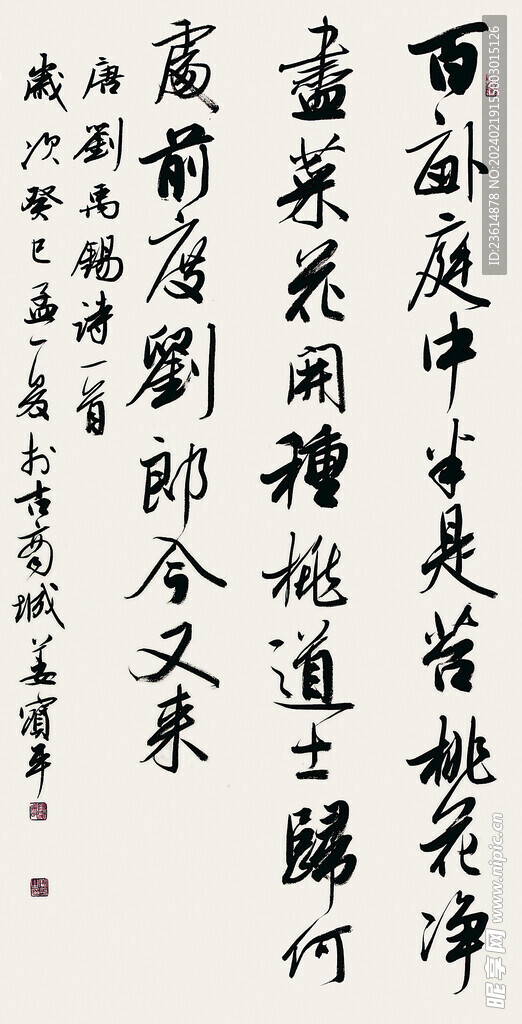 百畝庭中半是苔桃花净
盡菜花開種桃道士歸何
處前度劉郎今又来
唐劉禹錫诗一首
歲次癸巳孟夏於古商城姜賓平
ID:23614878 NO:20240219155003015126
昵享网 www.nipic.cn